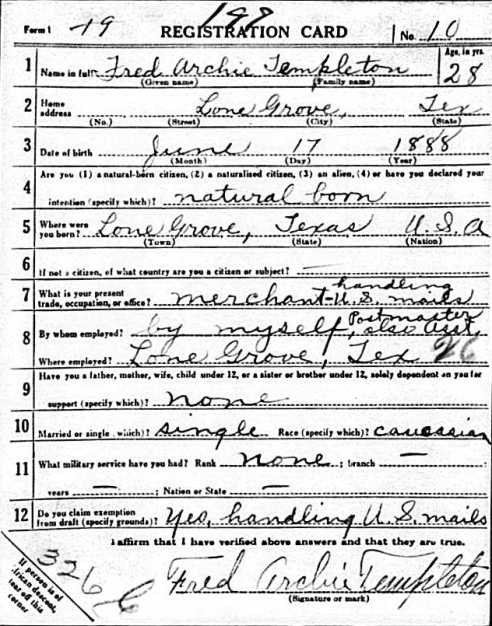 Form 1 19 199 REGISTRATION CARD No. 10
1 Name in full Fred Archie Templeton Age, in yrs. 28
(Given name) (Family name)
2 Home address Lone Grove, Tex
(No.) (Street) (City) (State)
3 Date of birth June 17 1888
(Month) (Day) (Year)
Are you (1) a natural-born citizen, (2) a naturalized citizen, (3) an alien, (4) or have you declared your
4 intention (specify which)? natural born
5 Where were you born? Lone Grove, Texas U.S.A
(Town) (State) (Nation)
6 If not a citizen, of what country are you a citizen or subject? —
7 What is your present trade, occupation, or office? merchant - handling U.S. mails
8 By whom employed? by myself, also Asst. Postmaster
Where employed? Lone Grove, Tex 26
9 Have you a father, mother, wife, child under 12, or a sister or brother under 12, solely dependent on you for
support (specify which)? none
10 Married or single (which)? single Race (specify which)? caucssian
11 What military service have you had? Rank none ; branch —
years — ; Nation or State —
12 Do you claim exemption from draft (specify grounds)? Yes, handling U.S. mails
I affirm that I have verified above answers and that they are true.
326
Fred Archie Templeton
(Signature or mark)
If person is of
African descent,
tear off this
corner